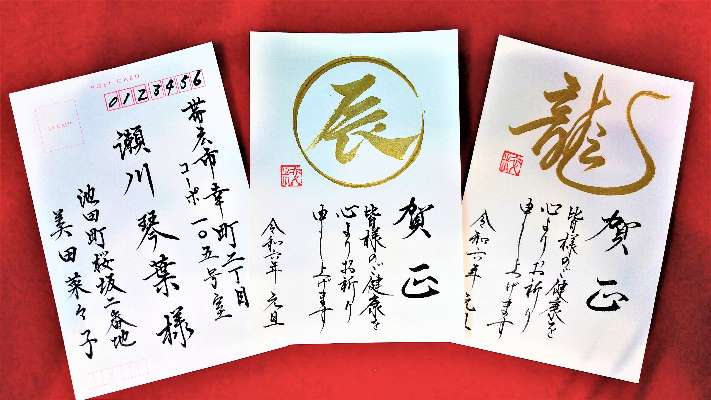 POST CARD
0123456
帯広市幸町二丁目
コーポ一〇五号室
瀬川琴葉様
池田町桜坂二番地
美田菜々子
辰
賀正
皆様のご健康を
心よりお祈り
申し上げます
令和六年 元旦
龍
賀正
皆様のご健康を
心よりお祈り
申し上げます
令和六年 元旦